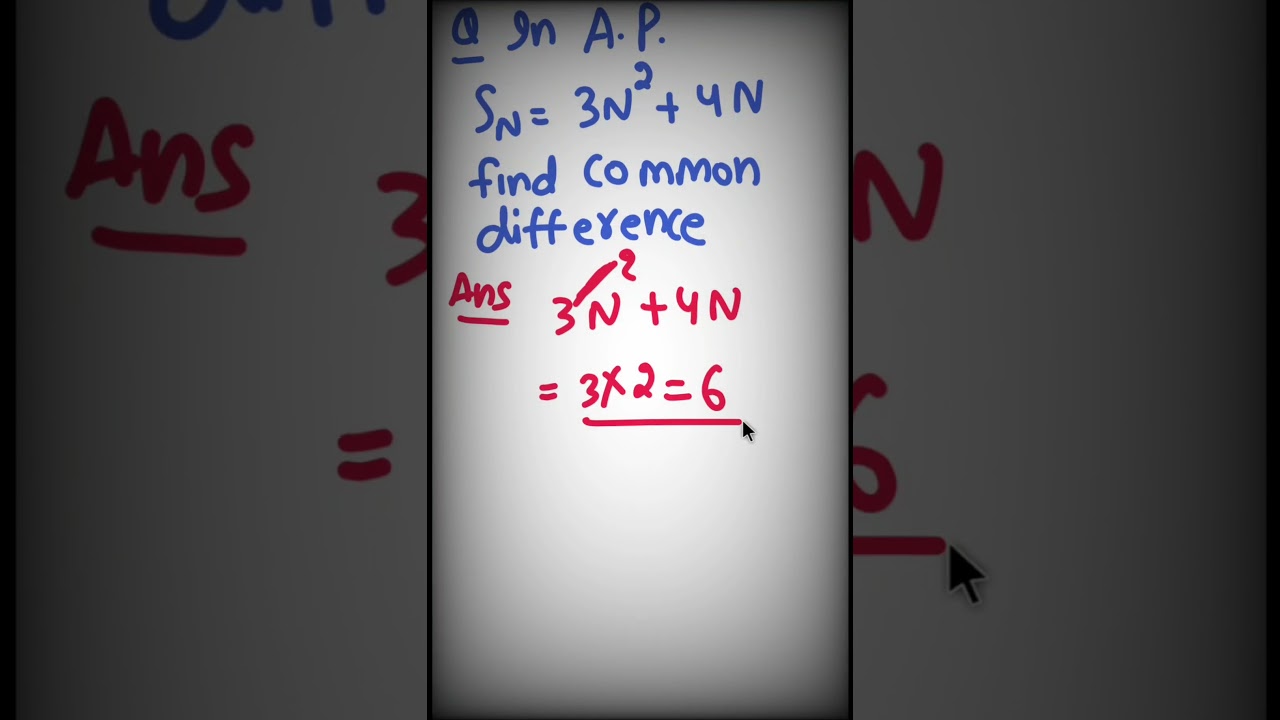 Q In A.P.
S_N = 3N² + 4N
find common
difference
Ans 3N² + 4N
= 3×2 = 6